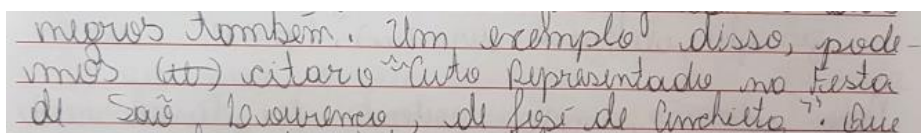 negros também. Um exemplo disso, pode-
mos (to) citar o "Auto Representado na Festa
de São Lourenço, de José de Anchieta". Que